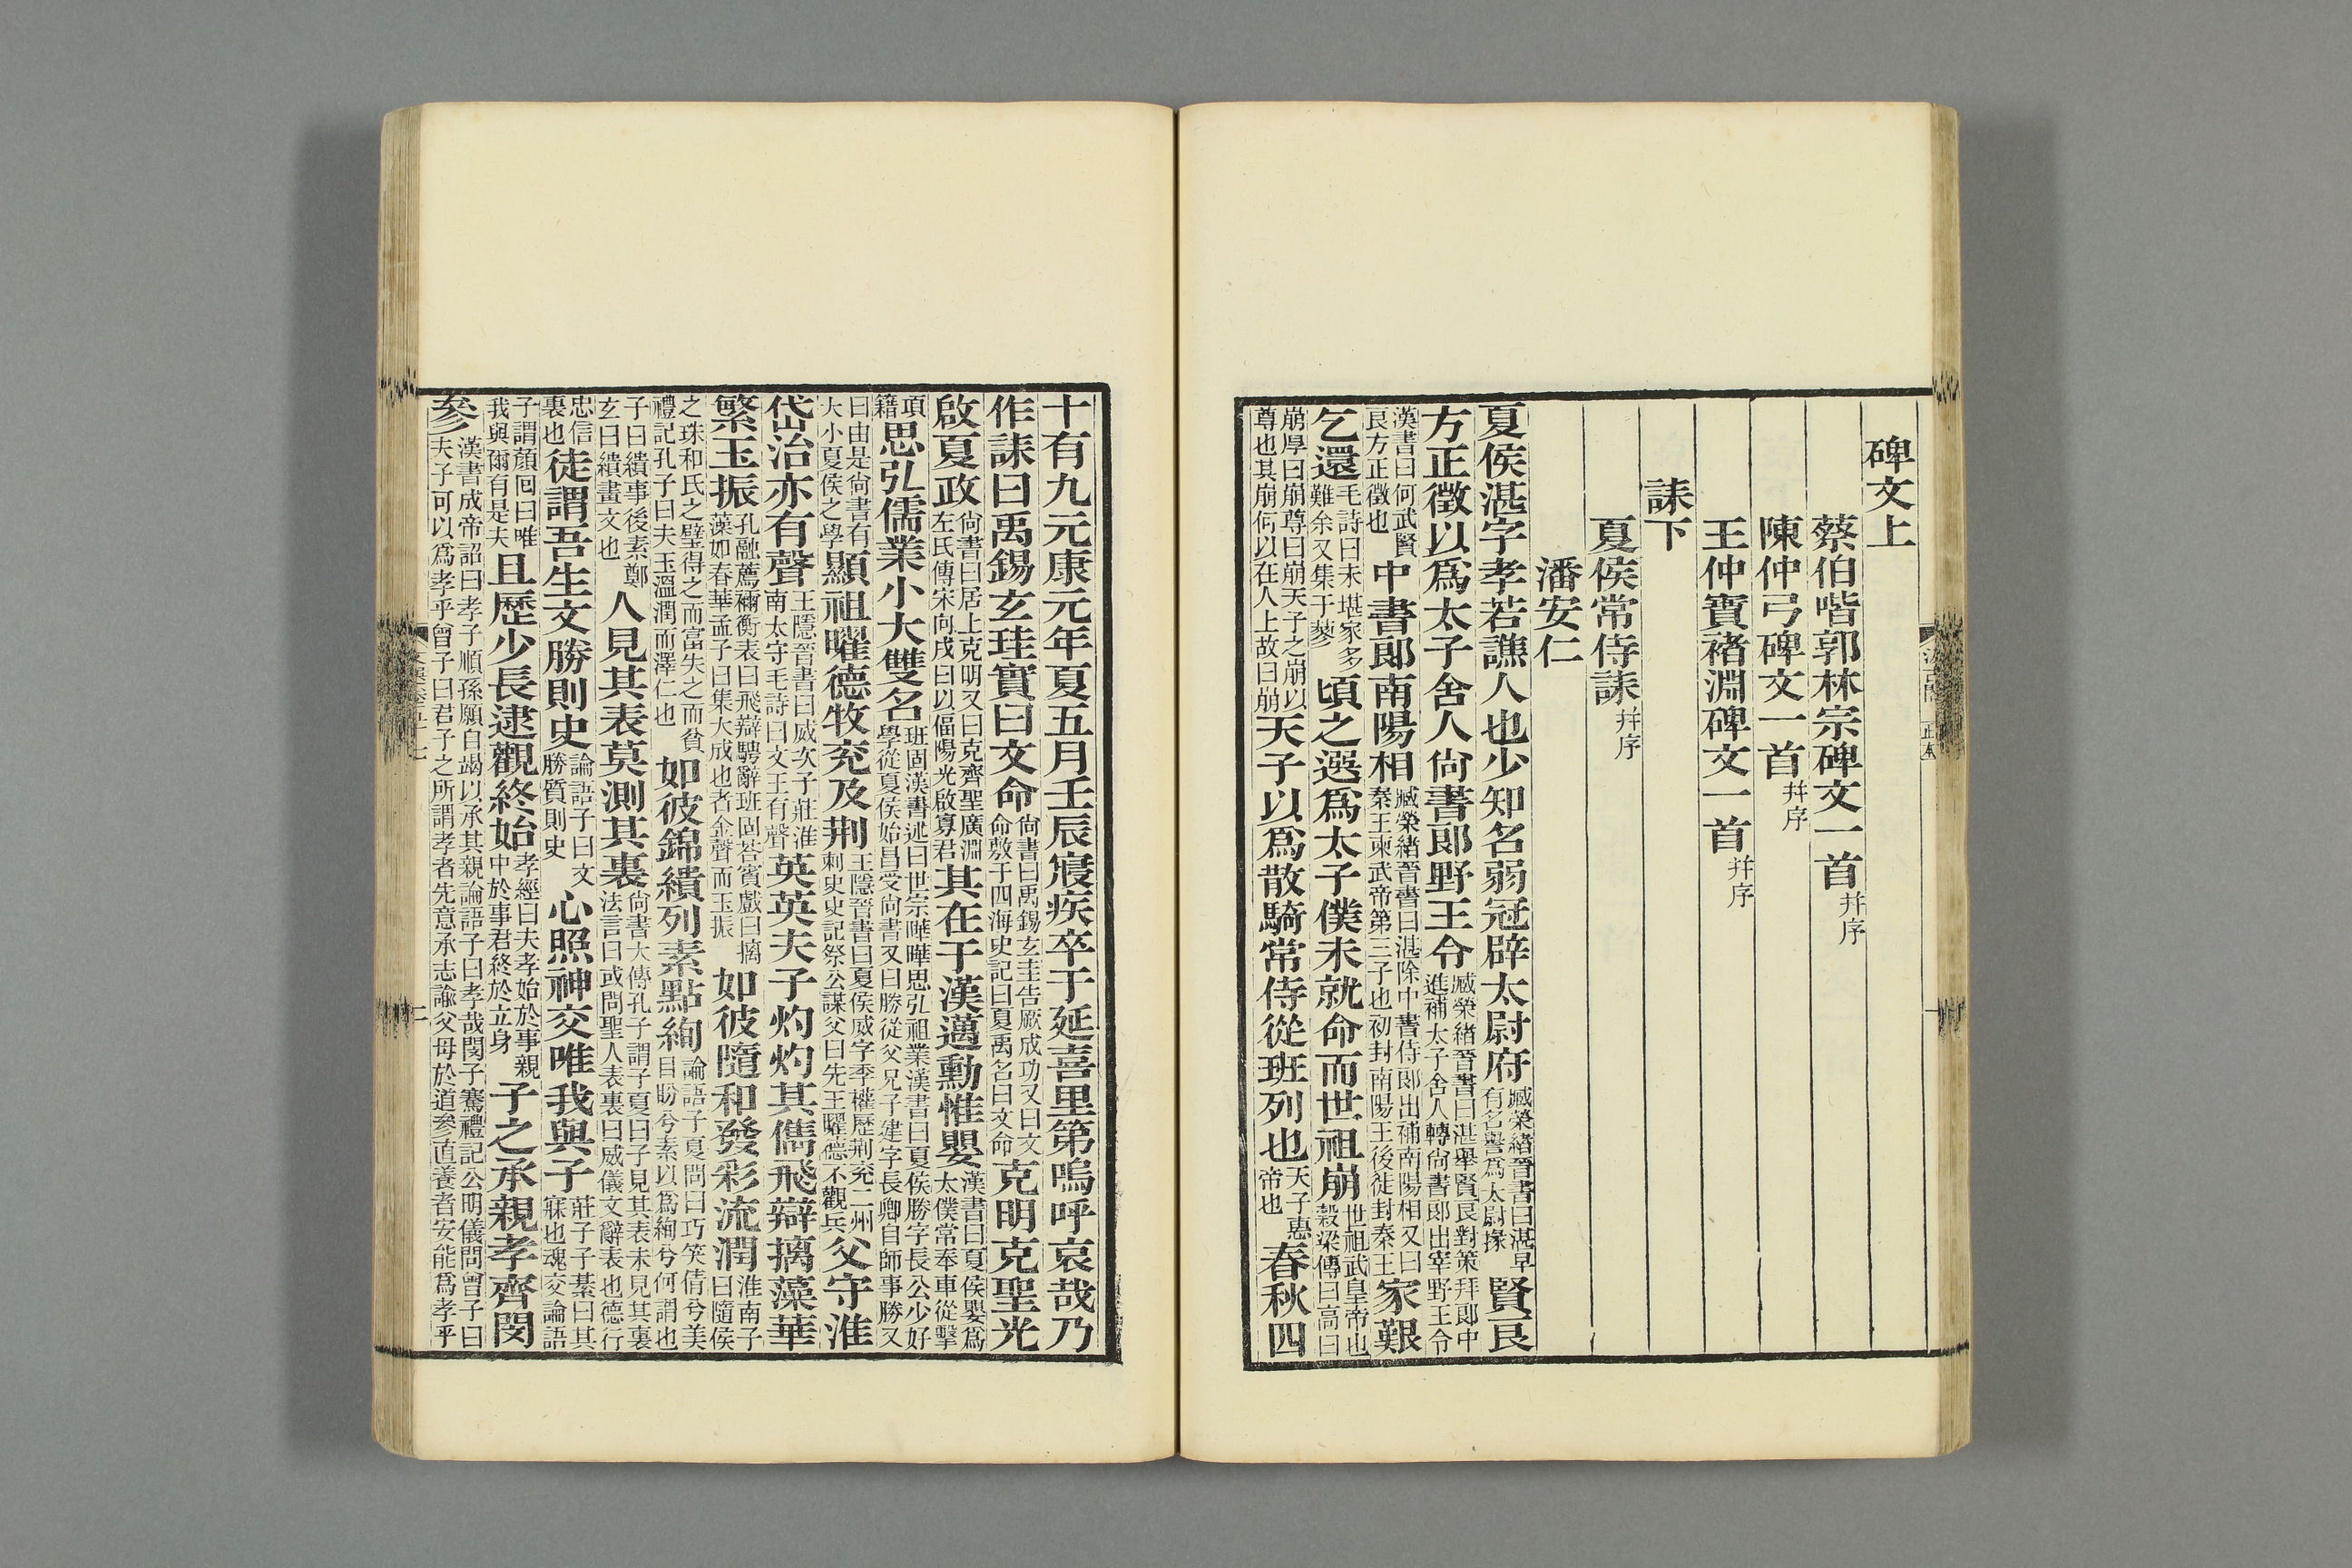 碑文上
蔡伯喈郭林宗碑文一首并序
陳仲弓碑文一首并序
王仲寶褚淵碑文一首并序
誄下
夏侯常侍誄并序
潘安仁
夏侯湛字孝若譙人也少知名弱冠辟太尉府臧榮緒晉書曰湛早有名譽為太尉掾賢良
方正徵以爲太子舍人尙書郎野王令臧榮緒晉書曰湛舉賢良對策拜郎中進補太子舍人轉尙書郎出宰野王令
漢書曰何武賢良方正徵也中書郎南陽相臧榮緒晉書曰湛除中書侍郎出補南陽相又曰秦王柬武帝第三子也初封南陽王後徙封秦王家艱
乞還毛詩曰未堪家多難余又集于蓼頃之選爲太子僕未就命而世祖崩世祖武皇帝也穀梁傳曰高曰
崩厚曰崩尊曰崩天子之崩以尊也其崩何以在人上故曰崩天子以爲散騎常侍從班列也天子惠帝也春秋四
十有九元康元年夏五月壬辰寢疾卒于延喜里第嗚呼哀哉乃
作誄曰禹錫玄珪實曰文命尙書曰禹錫玄圭告厥成功又曰文命敷于四海史記曰夏禹名曰文命克明克聖光
啟夏政尙書曰居上克明又曰克齊聖廣淵左氏傳宋向戌曰以偪陽光啟寡君其在于漢邁勳惟嬰漢書曰夏侯嬰爲太僕常奉車從擊
項籍思弘儒業小大雙名班固漢書述曰世宗曄曄思弘祖業漢書曰夏侯勝字長公少好學從夏侯始昌受尙書又曰勝從父兄子建字長卿自師事勝又
曰由是尙書有大小夏侯之學顯祖曜德牧兖及荆王隱晉書曰夏侯威字季權歷荆兖二州刺史史記祭公謀父曰先王曜德不觀兵父守淮
岱治亦有聲王隱晉書曰威次子莊淮南太守毛詩曰文王有聲英英夫子灼灼其儁飛辯摛藻華
繁玉振孔融薦禰衡表曰飛辯騁辭班固荅賓戲曰摛藻如春華孟子曰集大成也者金聲而玉振如彼隨和發彩流潤淮南子曰隨侯
之珠和氏之璧得之而富失之而貧禮記孔子曰夫玉溫潤而澤仁也如彼錦繢列素點絢論語子夏問曰巧笑倩兮美目盼兮素以爲絢兮何謂也
子曰繢事後素鄭玄曰繢畫文也人見其表莫測其裏尙書大傳孔子謂子夏曰子見其表未見其裏法言曰或問聖人表裏曰威儀文辭表也德行
忠信裏也徒謂吾生文勝則史論語子曰文勝質則史心照神交唯我與子莊子子綦曰其寐也魂交論語
子謂顏回曰唯我與爾有是夫且歷少長逮觀終始孝經曰夫孝始於事親中於事君終於立身子之承親孝齊閔
參漢書成帝詔曰孝子順孫願自竭以承其親論語子曰孝哉閔子騫禮記公明儀問曾子曰夫子可以爲孝乎曾子曰君子之所謂孝者先意承志諭父母於道參直養者安能爲孝乎